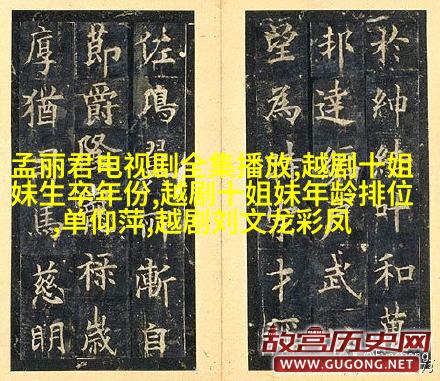 於紳叶和
邦達武
望為才
佐鴻漸自
節爵隆祿歲
厚猶馬慈明
孟丽君电视剧全集播放,越剧十姐
妹生卒年份,越剧十姐妹年龄排位
,单仰萍,越剧刘文龙彩凤
故宫历史网
WWW.GUGONG.NET